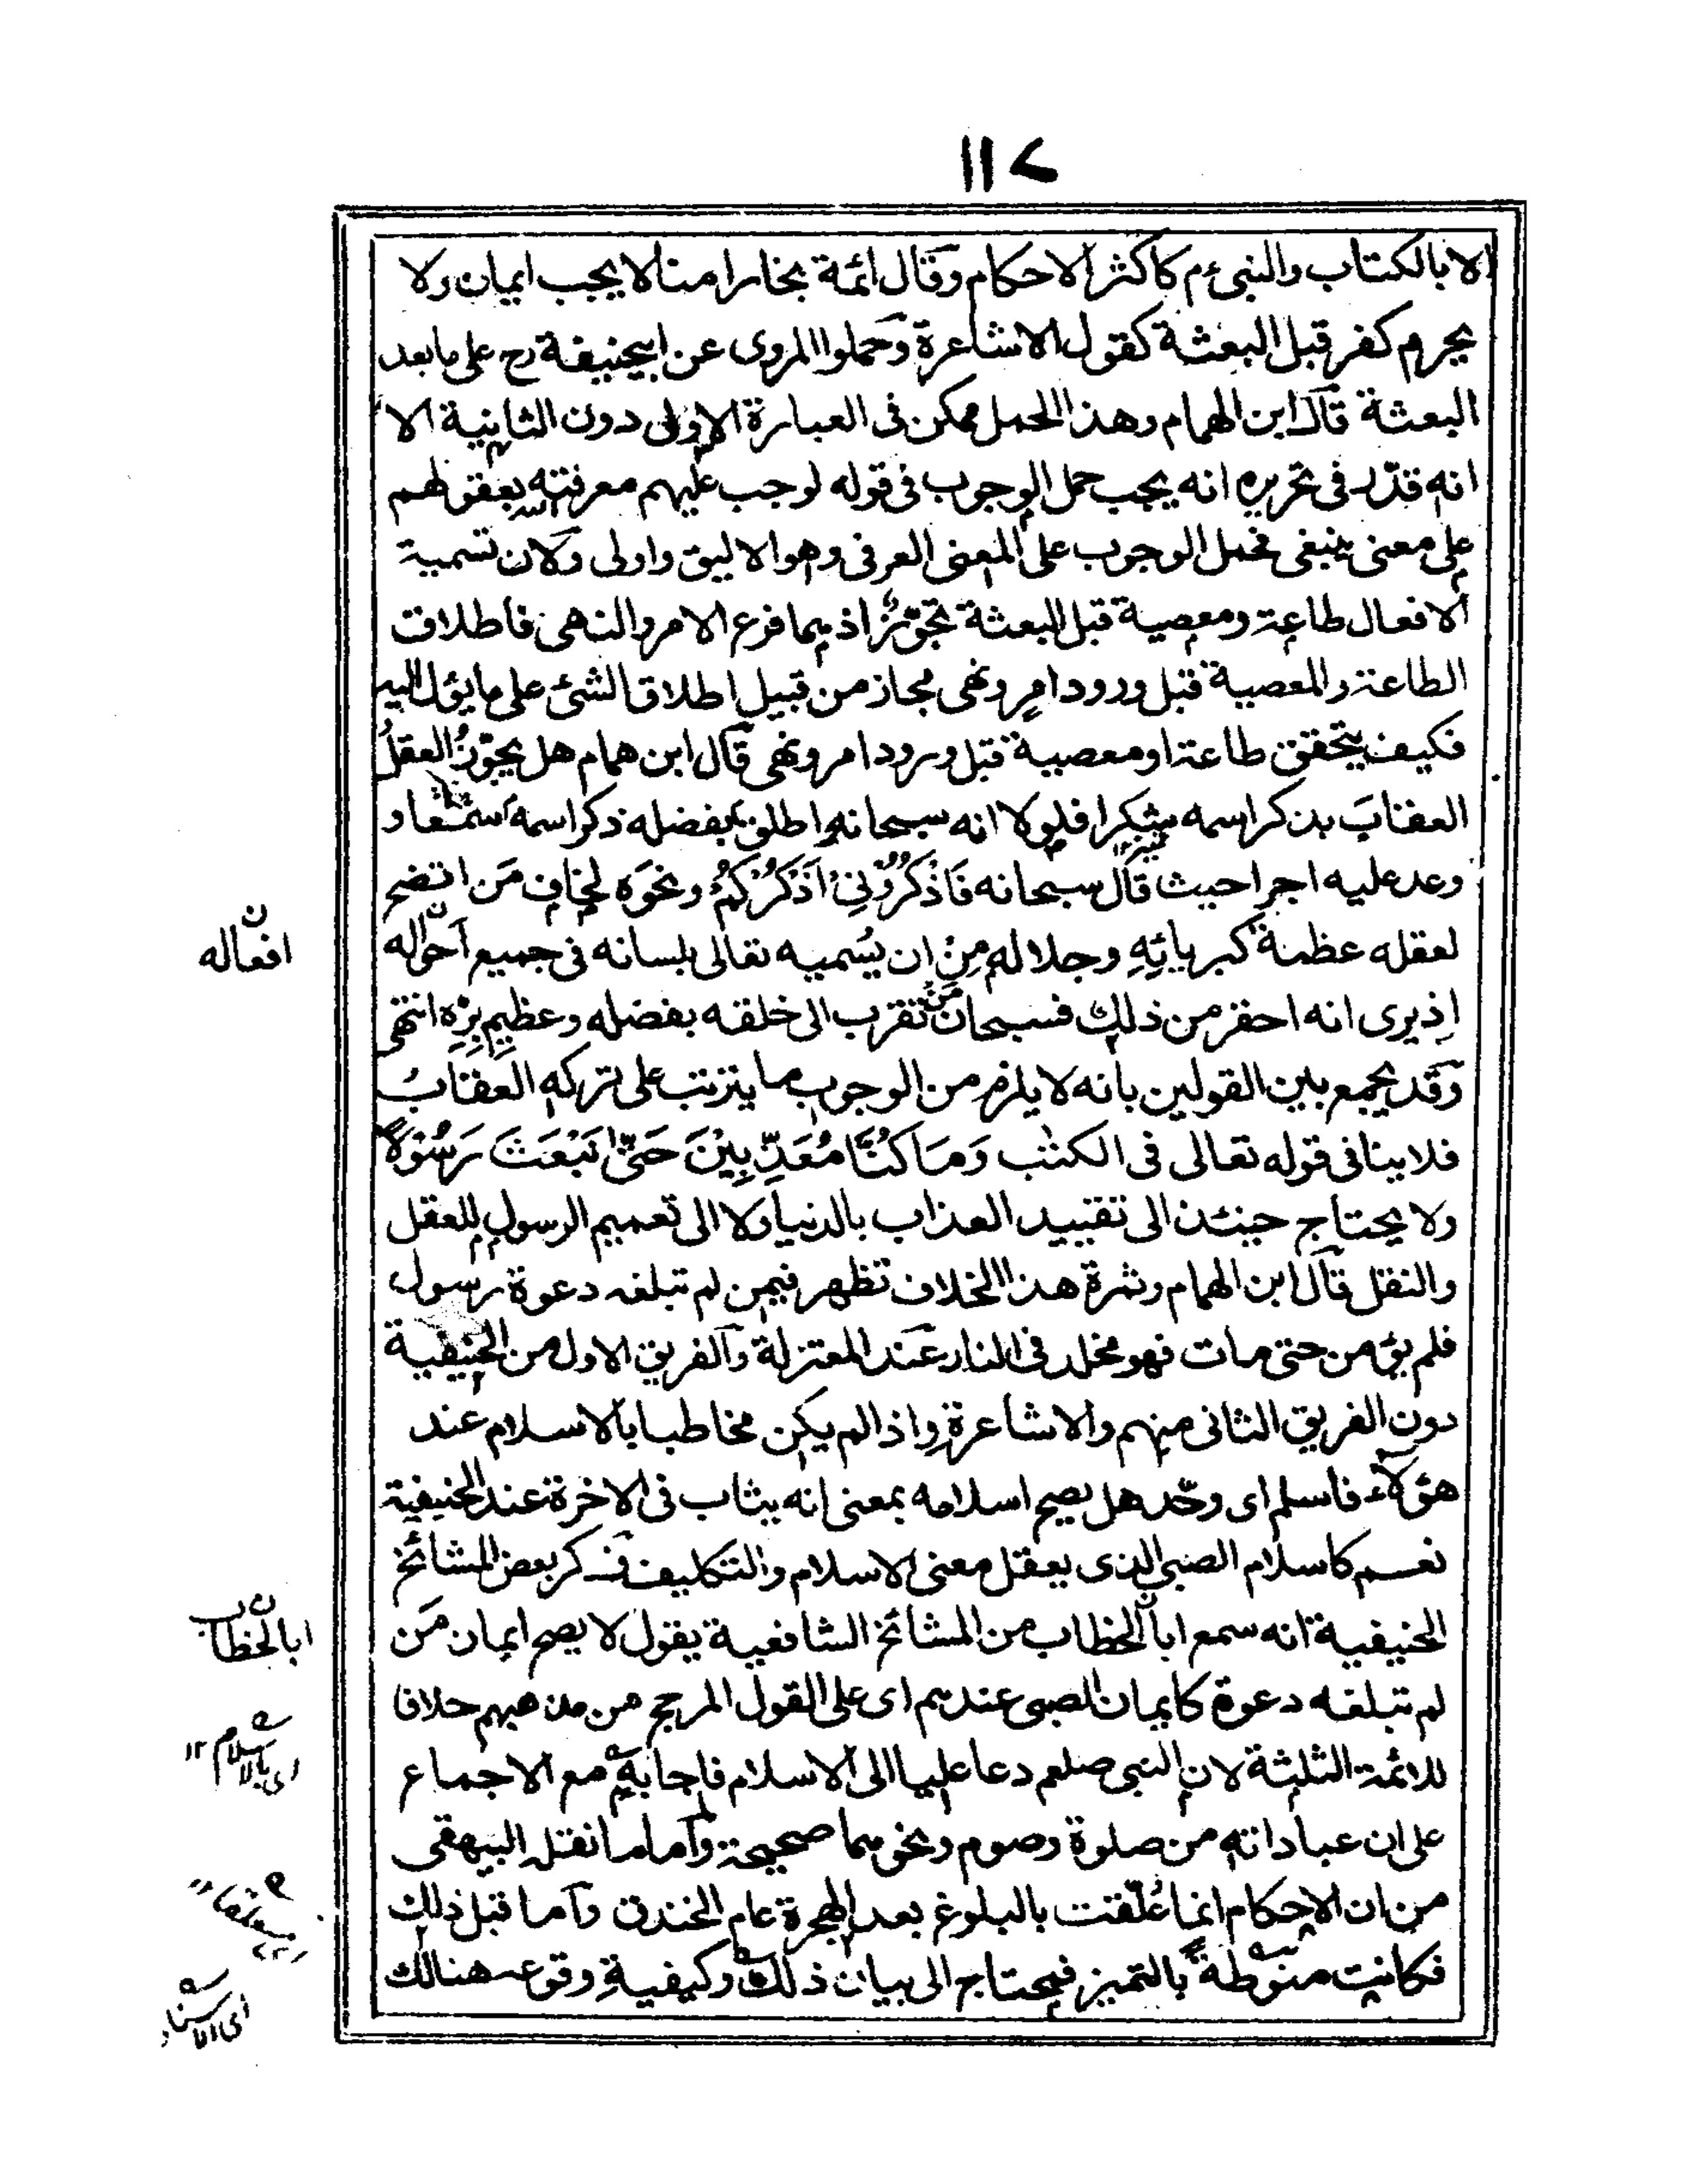 ١١٧
الا بالكتاب والنبىء م كاكثر الاحكام وقال ائمة بخارا منا لا يجب ايمان ولا
يحرم كفر قبل البعثة كقول الاشاعرة وحملوا المروى عن ابيحنيفة رح على ما بعد
البعثة قال ابن الهمام وهذا الحمل ممكن فى العبارة الاولى دون الثانية الا
انه قدّر فى تحريره انه يجب حمل الوجوب فى قوله لوجب عليهم معرفته بعقولهم
على معنى ينبغى فحمل الوجوب على المعنى العرفى وهو الاليق واولى ولان تسمية
الافعال طاعة ومعصية قبل البعثة تجوّز اذ هما فرع الامر والنهى فاطلاق
الطاعة والمعصية قبل ورود امر ونهى مجاز من قبيل اطلاق الشئ على ما يؤل اليه
فكيف يتحقق طاعة او معصية قبل ورود امر ونهى قال ابن همام هل يجوّز العقل
العقاب بذكر اسمه شكرا فلولا انه سبحانه اطلق بفضله ذكر اسمه
وعد عليه اجرا حيث قال سبحانه فَاذْكُرُوْنِىْ اَذْكُرْكُمْ ونحوه لخاف مَن اتضح
لعقله عظمة كبريائه وجلاله مِنْ ان يُسَميه تعالى بلسانه فى جميع احواله
اذ يرى انه احقر من ذلك فسبحان مَن تقرب الى خلقه بفضله وعظيم بِرّه انتهى
وقد يجمع بين القولين بانه لا يلزم من الوجوب ما يترتب على تركه العقاب
فلا ينافى قوله تعالى فى الكتٰب وَمَا كُنَّا مُعَذِّبِيْنَ حَتّٰى نَبْعَثَ رَسُوْلًا
ولا يحتاج حينئذ الى تقييد العذاب بالدنيا ولا الى تعميم الرسول للعقل
والنقل قال ابن الهمام وثمرة هذا الخلاف تظهر فيمن لم تبلغه دعوة رسول
فلم يؤمن حتى مات فهو مخلد فى النار عند المعتزلة والفريق الاول من الحنيفية
دون الفريق الثانى منهم والاشاعرة واذا لم يكن مخاطبا بالاسلام عند
هؤلاء فاسلم اى وحّد هل يصح اسلامه بمعنى انه يثاب فى الاخرة عند الحنيفية
نعم كاسلام الصبى الذى يعقل معنى الاسلام والتكليف فذكر بعض المشائخ
الحنيفية انه سمع ابا الخطاب من المشائخ الشافعية يقول لا يصح ايمان مَن
لم تبلغه دعوة كايمان الصبى عندهم اى على القول المرجح من مذهبهم خلافا
للائمة الثلثة لان النبى صلعم دعا عليا الى الاسلام فاجابه مع الاجماع
على ان عباداته من صلوة وصوم ونحوهما صحيحة واما ما نقله البيهقى
من ان الاحكام انما عُلّقت بالبلوغ بعد الهجرة عام الخندق واما قبل ذلك
فكانت منوطة بالتميز فيحتاج الى بيان ذلك وكيفية وقوعه هنالك
افعاله
ابا الخطاب
اى بالاسلام ١٢
اى الاسناد